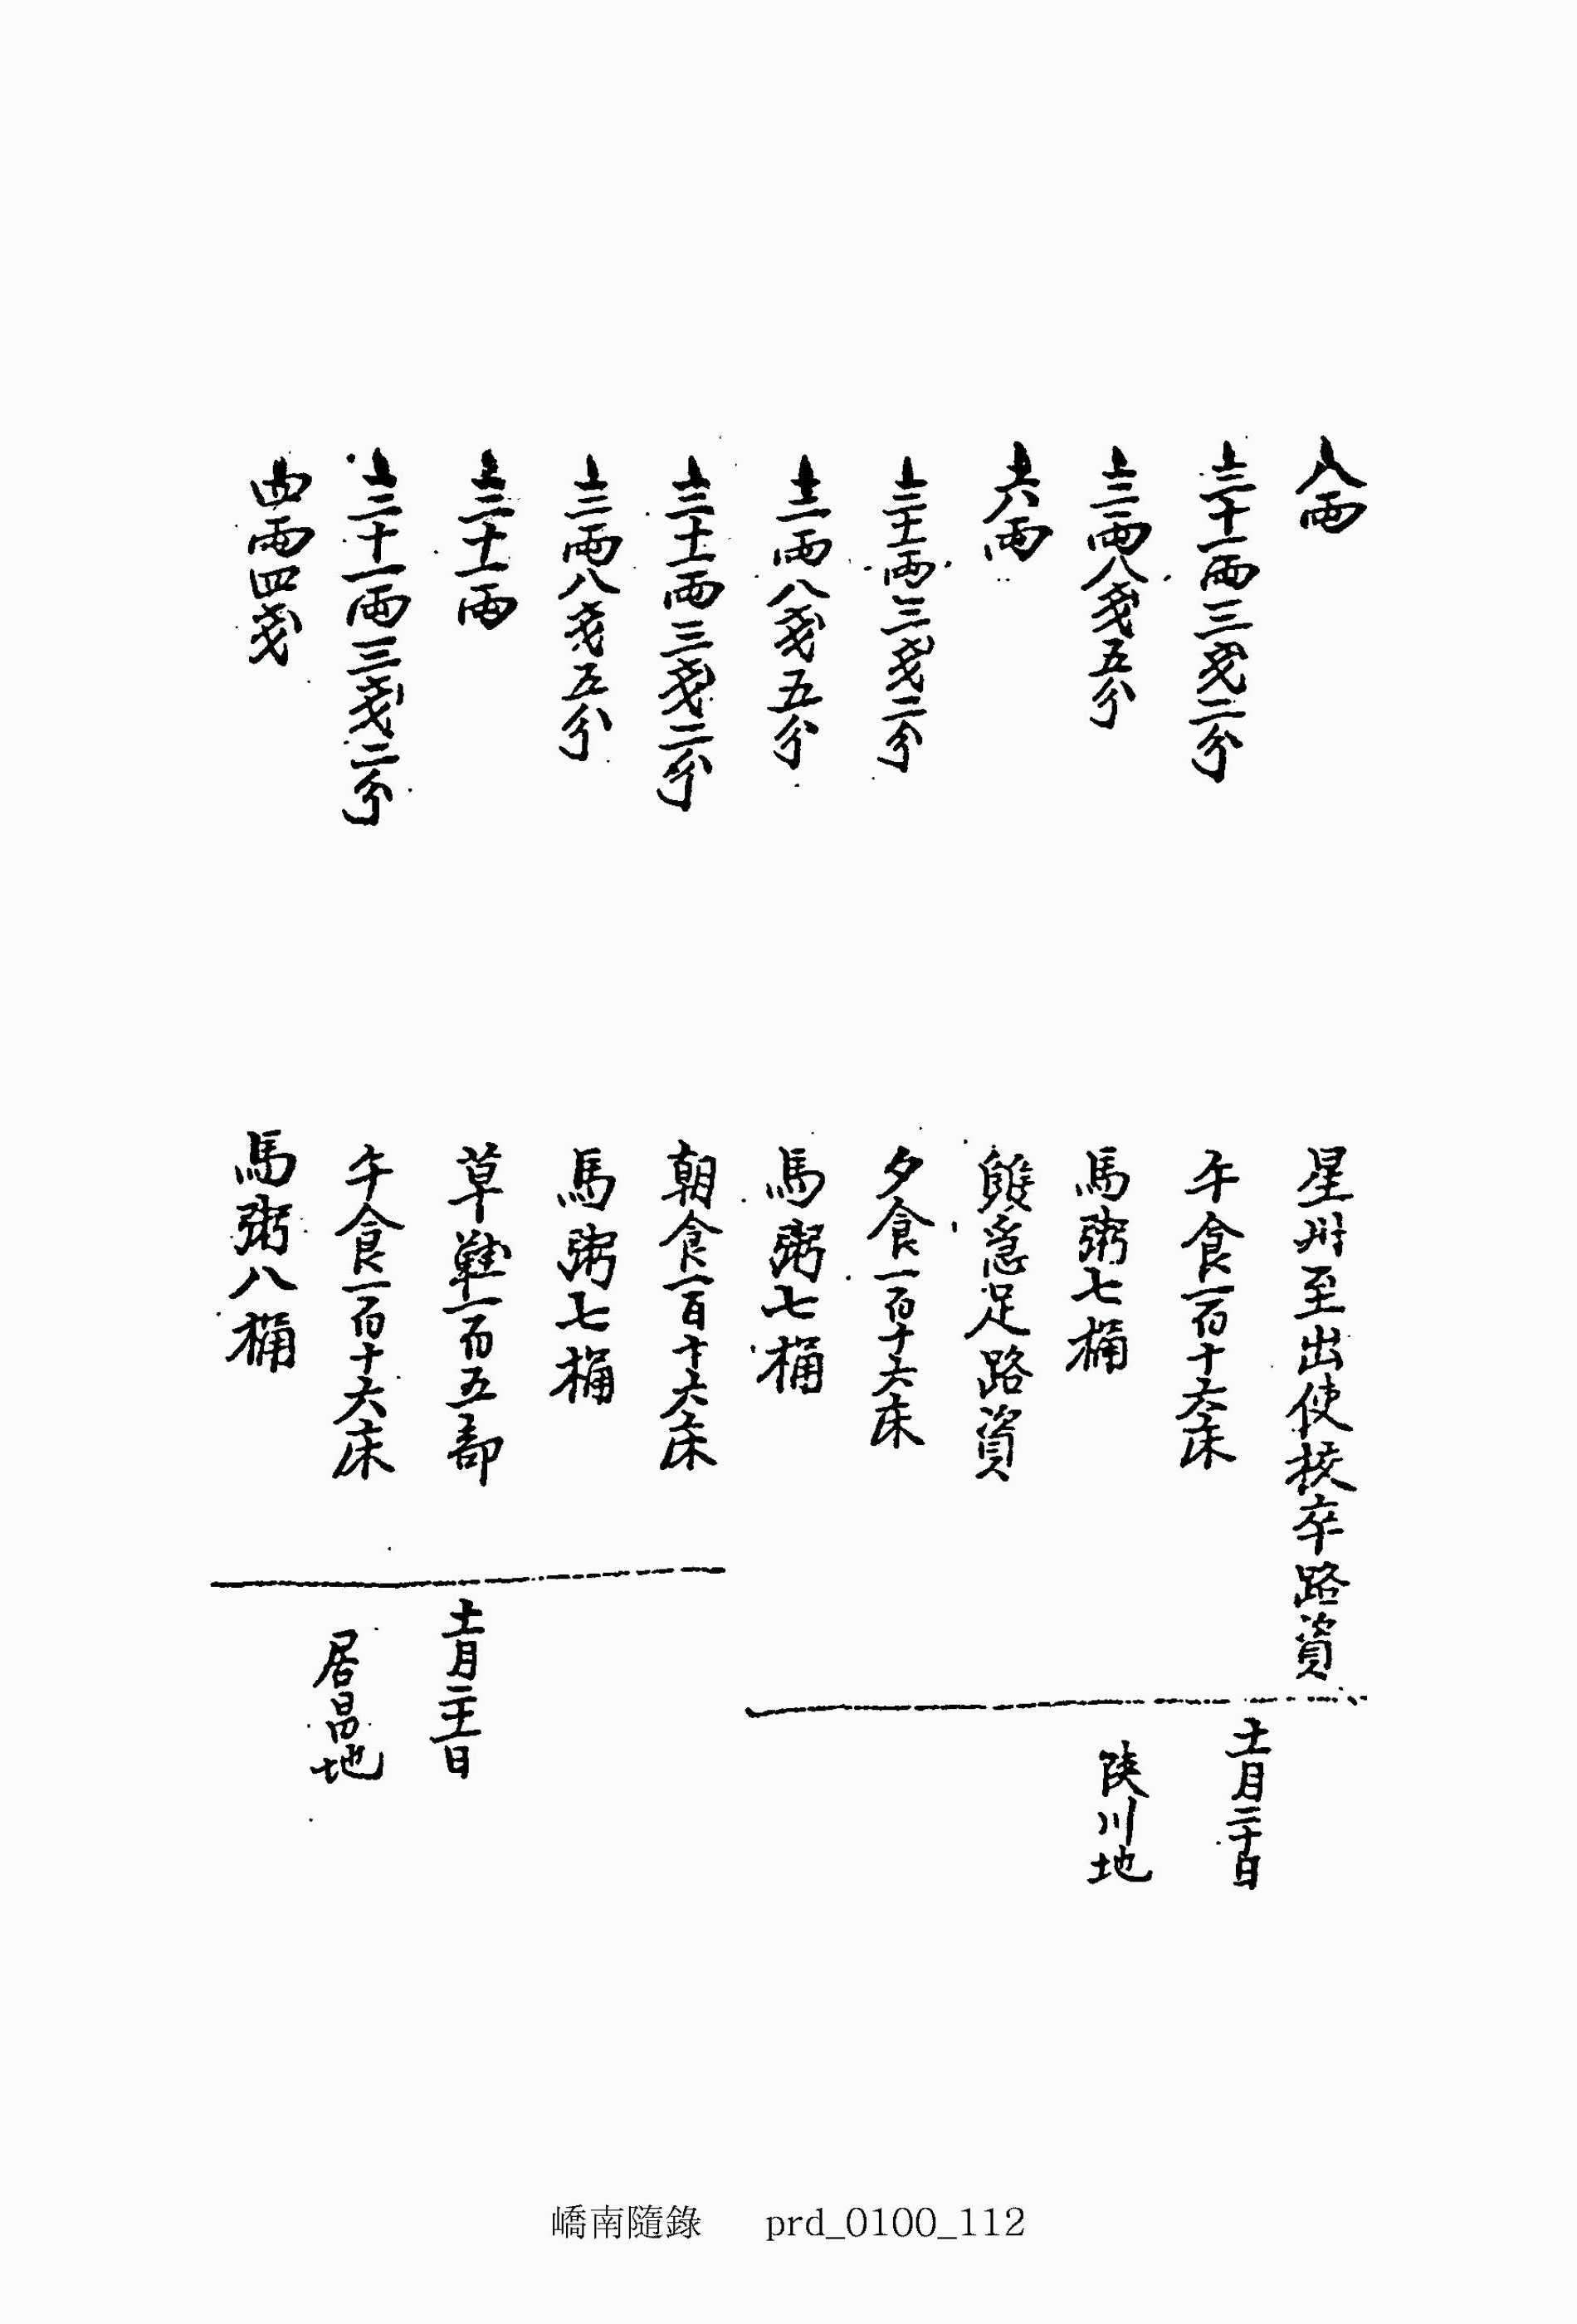 八兩
星州至出使校卒路資
三十一兩三戔二分
午食一百十六床
三兩八戔五分
馬粥七桶
六兩
急足路資
三十一兩三戔二分
夕食一百十六床
三兩八戔五分
馬粥七桶
三十一兩三戔二分
朝食一百十六床
三兩八戔五分
馬粥七桶
二十一兩
草鞋一百五部
三十一兩三戔二分
午食一百十六床
四兩四戔
馬粥八桶
十一月二十日
陜川地
十一月二十一日
居昌地
嶠南隨錄 prd_0100_112